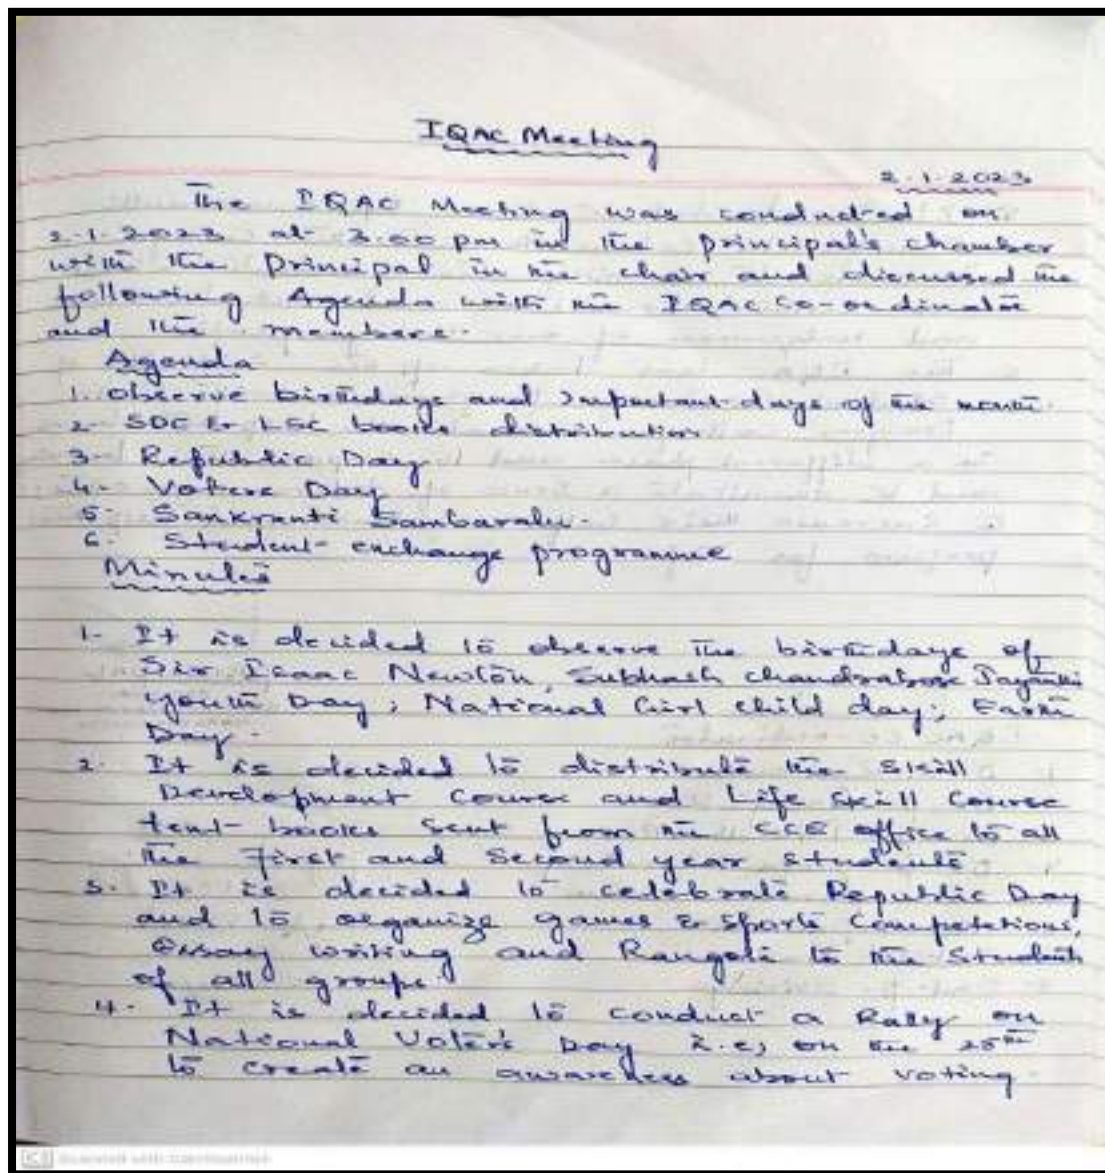 IQAC Meeting
2.1.2023
The IQAC Meeting was conducted on
2.1.2023 at 3.00 pm in the principal's chamber
with the Principal in the chair and discussed the
following Agenda with the IQAC Co-ordinator
and the members.
Agenda
1. Observe birthdays and Important days of the month.
2. SDC & LSC books distribution
3. Republic Day
4. Voters Day
5. Sankranti Sambaralu.
6. Student exchange programme
Minutes
1. It is decided to observe the birthdays of
Sir Isaac Newton, Subhash Chandrabose Jayanthi
Youth Day, National Girl child day, Earth
Day.
2. It is decided to distribute the Skill
Development Course and Life Skill Course
text books sent from the CCE office to all
the First and Second year students
3. It is decided to celebrate Republic Day
and to organize games & sports Competetions,
Essay writing and Rangoli to the Students
of all groups.
4. It is decided to conduct a Rally on
National Voter's Day i.e, on the 25th
to create an awareness about voting.